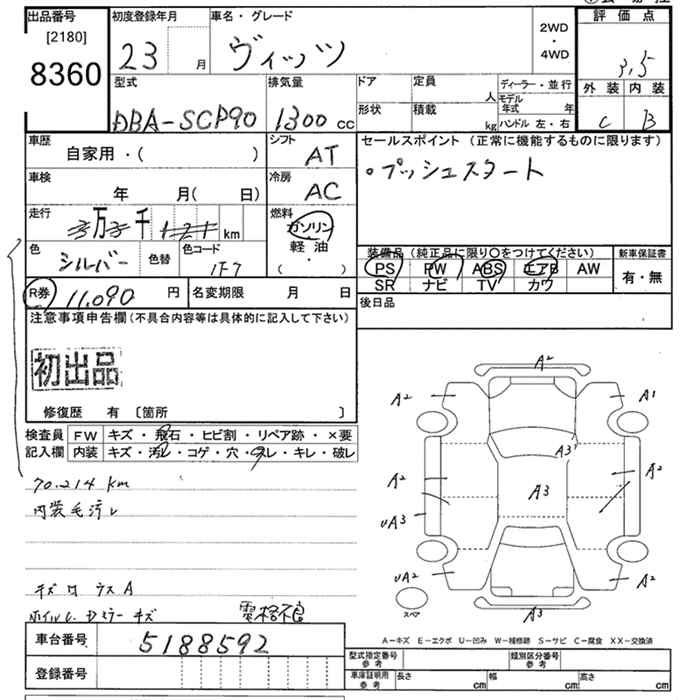 出品番号 初度登録年月 車名・グレード 2WD・4WD 評価点
[2180]
8360 23 月 ヴィッツ 3.5
外装 内装
C B
型式 排気量 ドア 定員 人 ディーラー・並行
DBA-SCP90 1300 cc 形状 積載 kg モデル年式 年
ハンドル 左・右
車歴 シフト セールスポイント (正常に機能するものに限ります)
自家用・( ) AT 。プッシュスタート
車検 冷房
年 月( 日) AC
走行 燃料
万 千 km ガソリン
軽油
( ・ )
色 シルバー 色替 色コード 1F7
装備品 (純正品に限り○をつけてください) 新車保証書
PS PW ABS エアB AW 有・無
SR ナビ TV カワ
R券 11,090 円 名変期限 月 日
後日品
注意事項申告欄(不具合内容等は具体的に記入して下さい)
初出品
修復歴 有 〔箇所 〕
検査員 FW キズ・飛石・ヒビ割・リペア跡・×要
記入欄 内装 キズ・汚レ・コゲ・穴・スレ・キレ・破レ
70.214 km
内装毛汚レ
A2
A2 A1
A3
A2 A3 A2
UA3
UA2 A2
スペア A3
A-キズ E-エクボ U-凹み W-補修跡 S-サビ C-腐食 XX-交換済
車台番号 5188592
登録番号
型式指定番号 参考 類別区分番号 参考
車庫証明用 参考 長さ cm 幅 cm 高さ cm